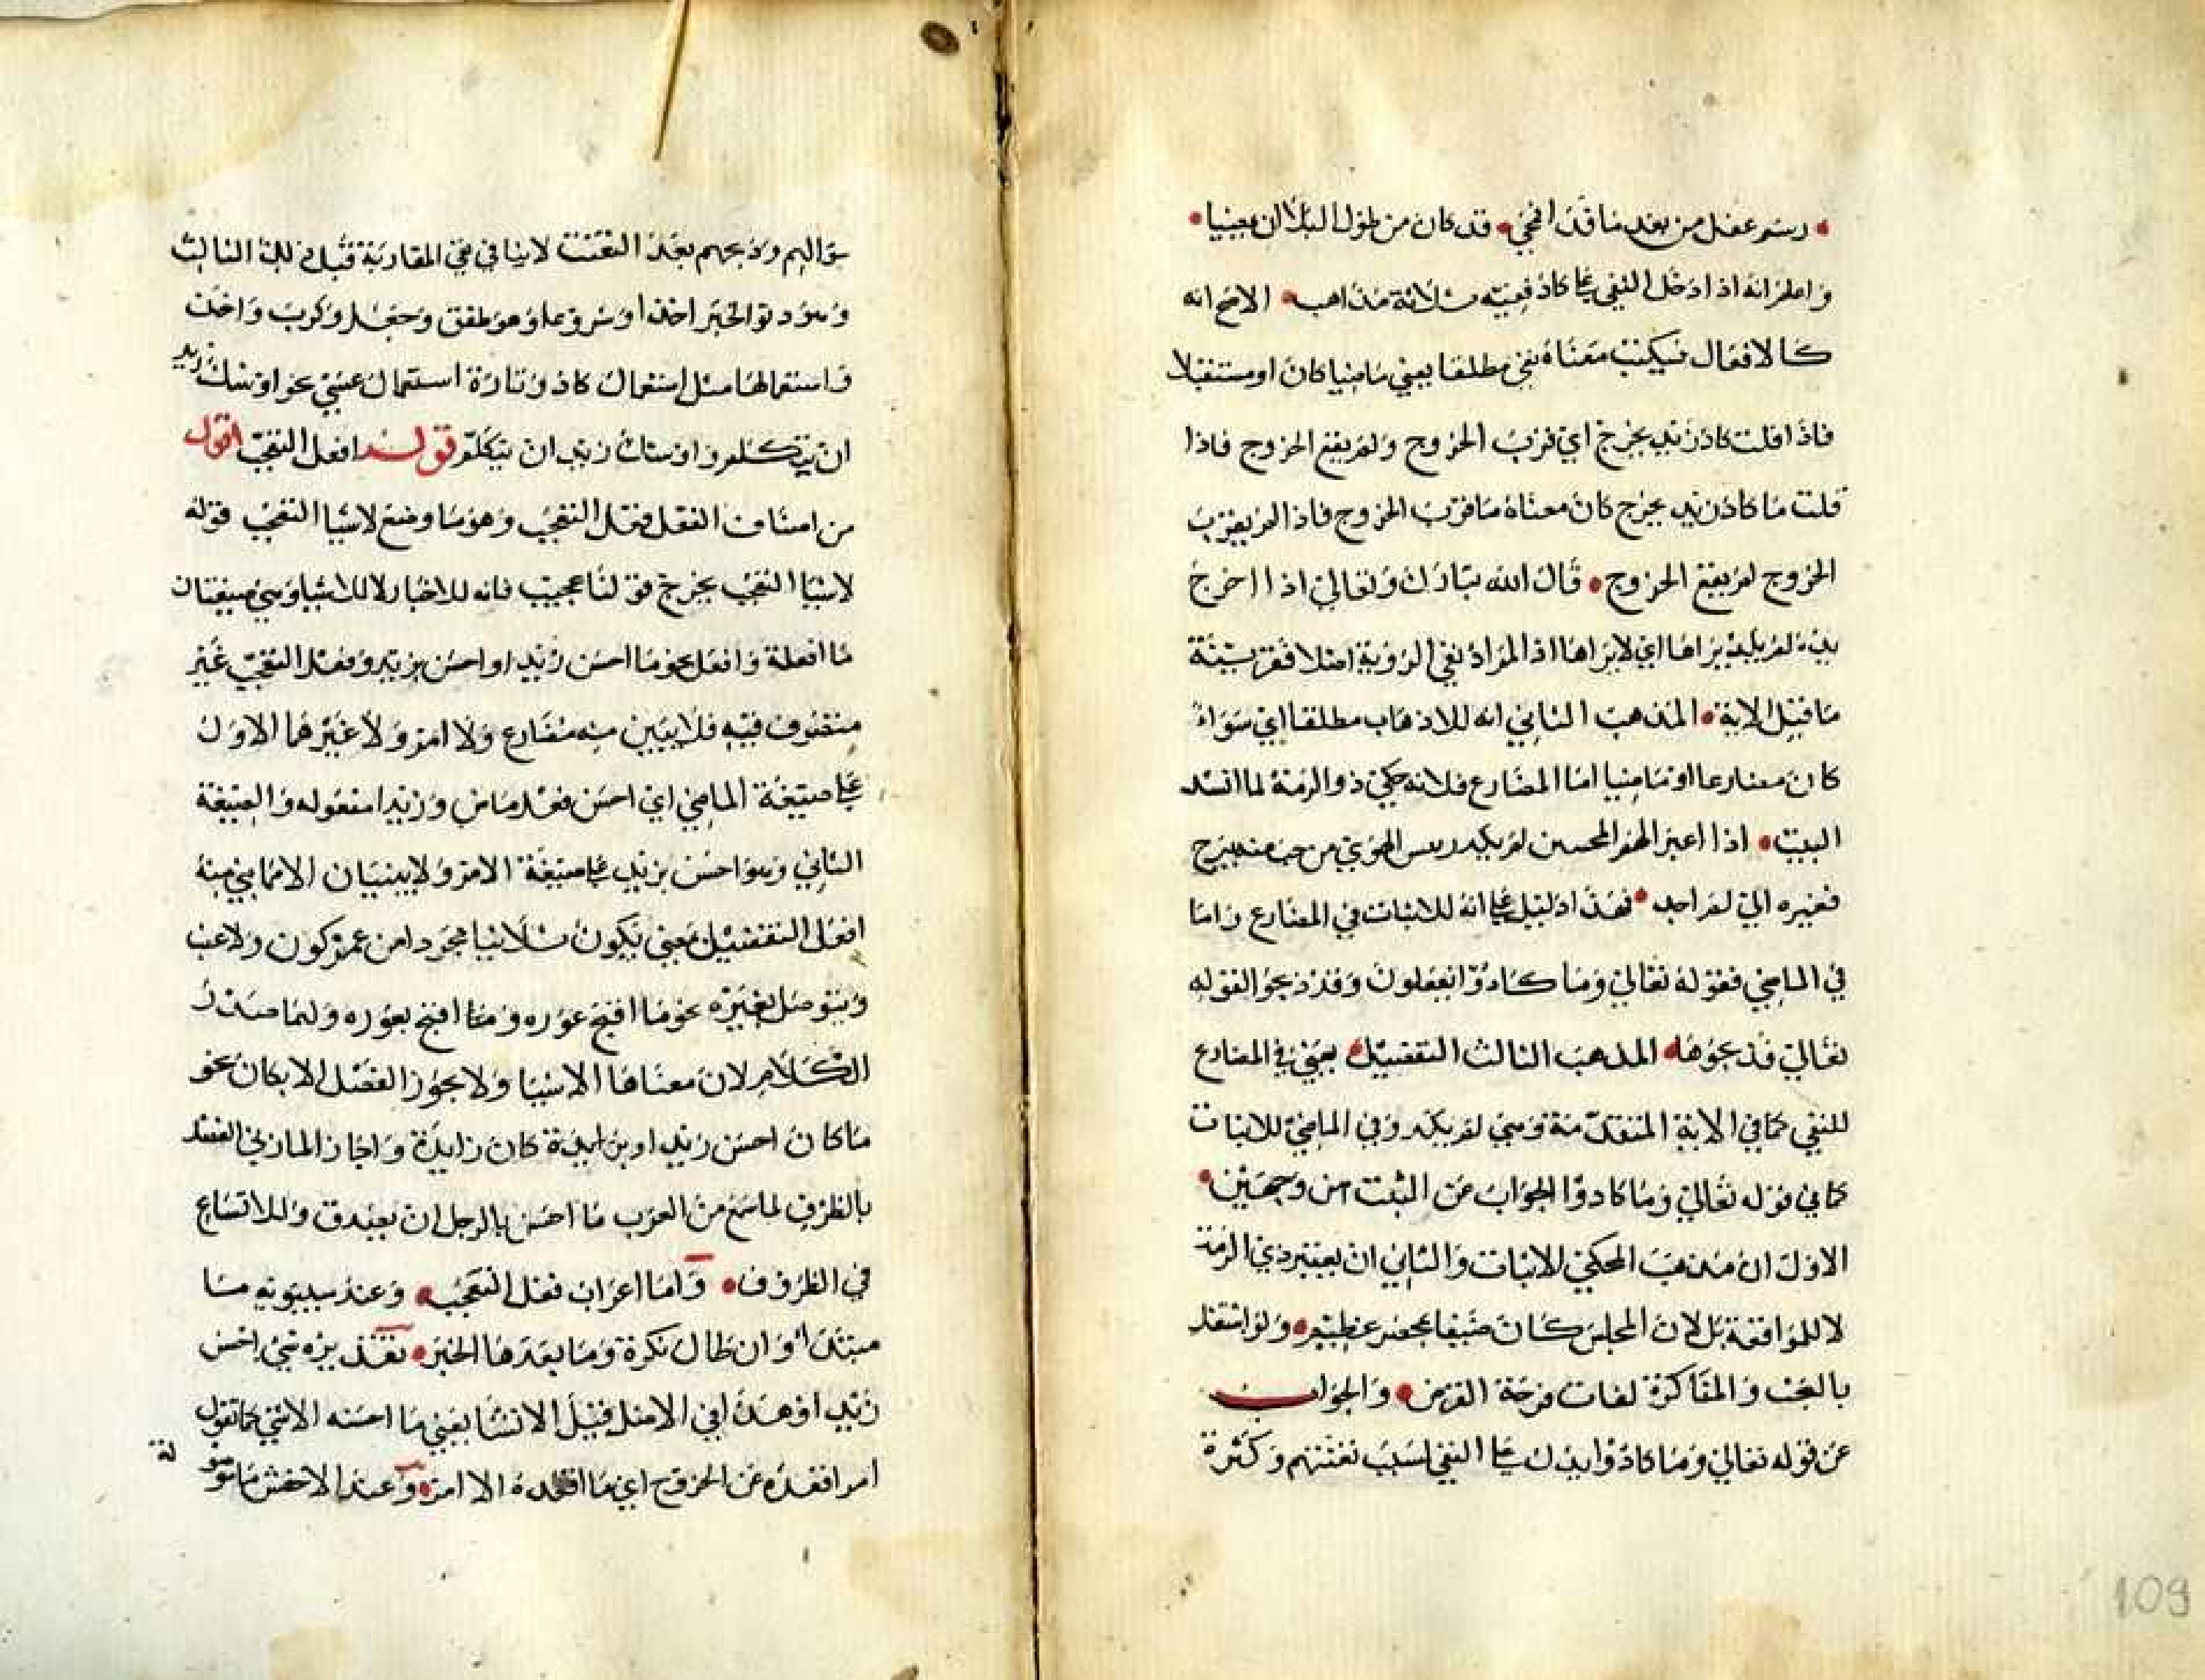 رسم عفى من بعد ما قد انمحى قد كان من طول البلا ان يمصيا
واعلم انه اذا دخل النفي على كاد ففيه ثلاثة مذاهب الاصح انه
كالافعال فيكون معناه نفي مطلقا يعني ماضيا كان او مستقبلا
فاذا قلت كاد زيد يخرج اي قرب الخروج ولم يقع الخروج فاذا
قلت ما كاد زيد يخرج كان معناه ما قرب الخروج فاذا لم يقرب
الخروج لم يقع الخروج قال الله تبارك وتعالى اذا اخرج
يده لم يكد يراها اي لا يراها اذ المراد نفي الروية اصلا فقرينة
ما قبل الاية المذهب الثاني انه للاذهاب مطلقا اي سواء
كان مضارعا او ماضيا اما المضارع فلانه حكي ذو الرمة لما انشد
البيت اذا غير الهجر المحبين لم يكد رسيس الهوى من حب مية يبرح
فغيره الى لم اجد فهذا دليل على انه للاثبات في المضارع واما
في الماضي فقوله تعالى وما كادوا يفعلون وقد ذبحوا لقوله
تعالى فذبحوها المذهب الثالث التفصيل يعني في المضارع
للنفي كما في الاية المتقدمة وهي لم يكد وفي الماضي للاثبات
كما في قوله تعالى وما كادوا الجواب عن البيت من وجهين
الاول ان مذهب المحكي للاثبات والثاني ان تغيير ذي الرمة
لا للموافقة بل لان المجلس كان ضيقا بحضر عظيم ولو اشتغل
بالبحث والمذاكرة لفات فرحة الفرض والجواب
عن قوله تعالى وما كادوا يدل على النفي لسبب تعنتهم وكثرة
سوالهم وذبحهم بعد التعنت لا ينافي نفي المقاربة قبل ذلك الثالث
وهو دنو الخبر اخذا وشروعا وهو طفق وجعل وكرب واخذ
واستعمالها مثل استعمال كاد وتارة استعمال عسى نحو اوشك زيد
ان يتكلم واوشك زيد ان يتكلم قوله افعل التعجب اقول
من اصناف الفعل فعل التعجب وهو ما وضع لانشا التعجب قوله
لانشا التعجب يخرج قولنا عجيب فانه للاخبار لا للانشا وهي صيغتان
ما افعله وافعل نحو ما احسن زيدا واحسن بزيد وفعل التعجب غير
متصرف فيه فلا يبين منه مضارع ولا امر ولا غيرهما الاول
على صيغة الماضي اي احسن فعل ماض وزيدا مفعوله والصيغة
الثاني وهو احسن بزيد على صيغة الامر ولا يبنيان الا مما يبنى منه
افعل التفضيل يعني يكون ثلاثيا مجردا من غير كون ولا عيب
ويتوصل لغيره نحو ما اقبح عوره وما اقبح بعوره ولهما صدر
الكلام لان معناها الانشا ولا يجوز الفصل الا بكان نحو
ما كان احسن زيدا وبزايدة كان زايدة واجاز المازني الفصل
بالظرف لما سمع من العرب ما احسن بالرجل ان يصدق وللاتساع
في الظروف واما اعراب فعل التعجب وعند سيبويه ما
مبتدا وان طال نكرة وما بعدها الخبر تقديره شي احسن
زيدا وهذا في الاصل قبل الانشا يعني ما احسنه الا شي كما تقول
امر اقعده عن الخروج اي ما اقعده الا امر وعند الاخفش ما موصو
لة
109